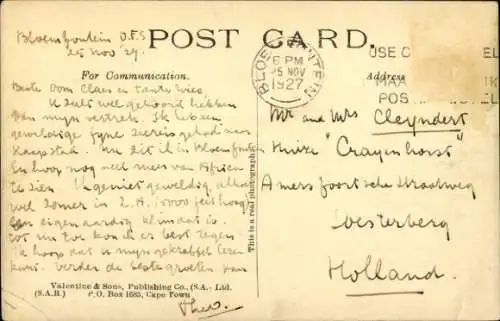 Bloemfontein O.F.S.
25 Nov '27.
POST CARD.
For Communication.
Address
BLOEMFONTEIN
6 PM
25 NOV
1927
USE
POS
Beste Oom Claes en tante Wies,
U zult wel gehoord hebben
van mijn vertrek. Ik heb een
geweldige fijne zeereis gehad naar
Kaapstad. Nu zit ik in Bloemfontein
en hoop nog veel meer van Afrika
te zien. Ik geniet geweldig, al
wel zomer in Z.A. 5000 feet hoog
een eigenaardig klimaat is.
Tot nu toe kon ik er best tegen
Ik hoop dat u mijn gekrabbel lezen
kunt. Verder de beste groeten van
Theo.
This is a real photograph
Mr and Mrs Cleyndert
Huize "Crayenhorst"
Amersfoortsche Straatweg
Soesterberg
Holland.
Valentine & Sons, Publishing Co., (S.A.) Ltd.
(S.A.R.) P.O. Box 1685, Cape Town